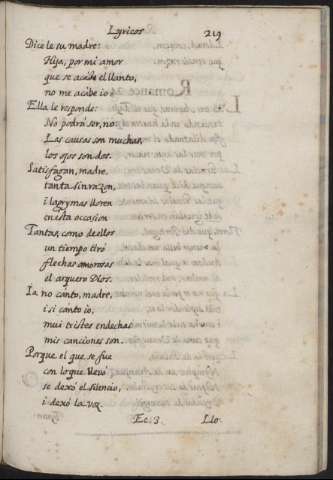 Lyricos 219
Dice le su madre:
Hija, por mi amor
que se acabe el llanto,
no me acabe io.
Ella le responde:
No podrá ser, no:
Las causas son muchas,
los ojos son dos.
Satisfagan, madre,
tanta sinrazon,
i lagrymas lloren
en esta occasion
Tantas, como de ellos
un tiempo tiró
flechas amorosas
el arquero Dios.
Ia no canto, madre,
i si canto io,
mui tristes endechas
mis canciones son.
Porque el que se fue
con lo que llevó
se dexó el silencio,
i dexó la voz.
Ee. 3. Llo-